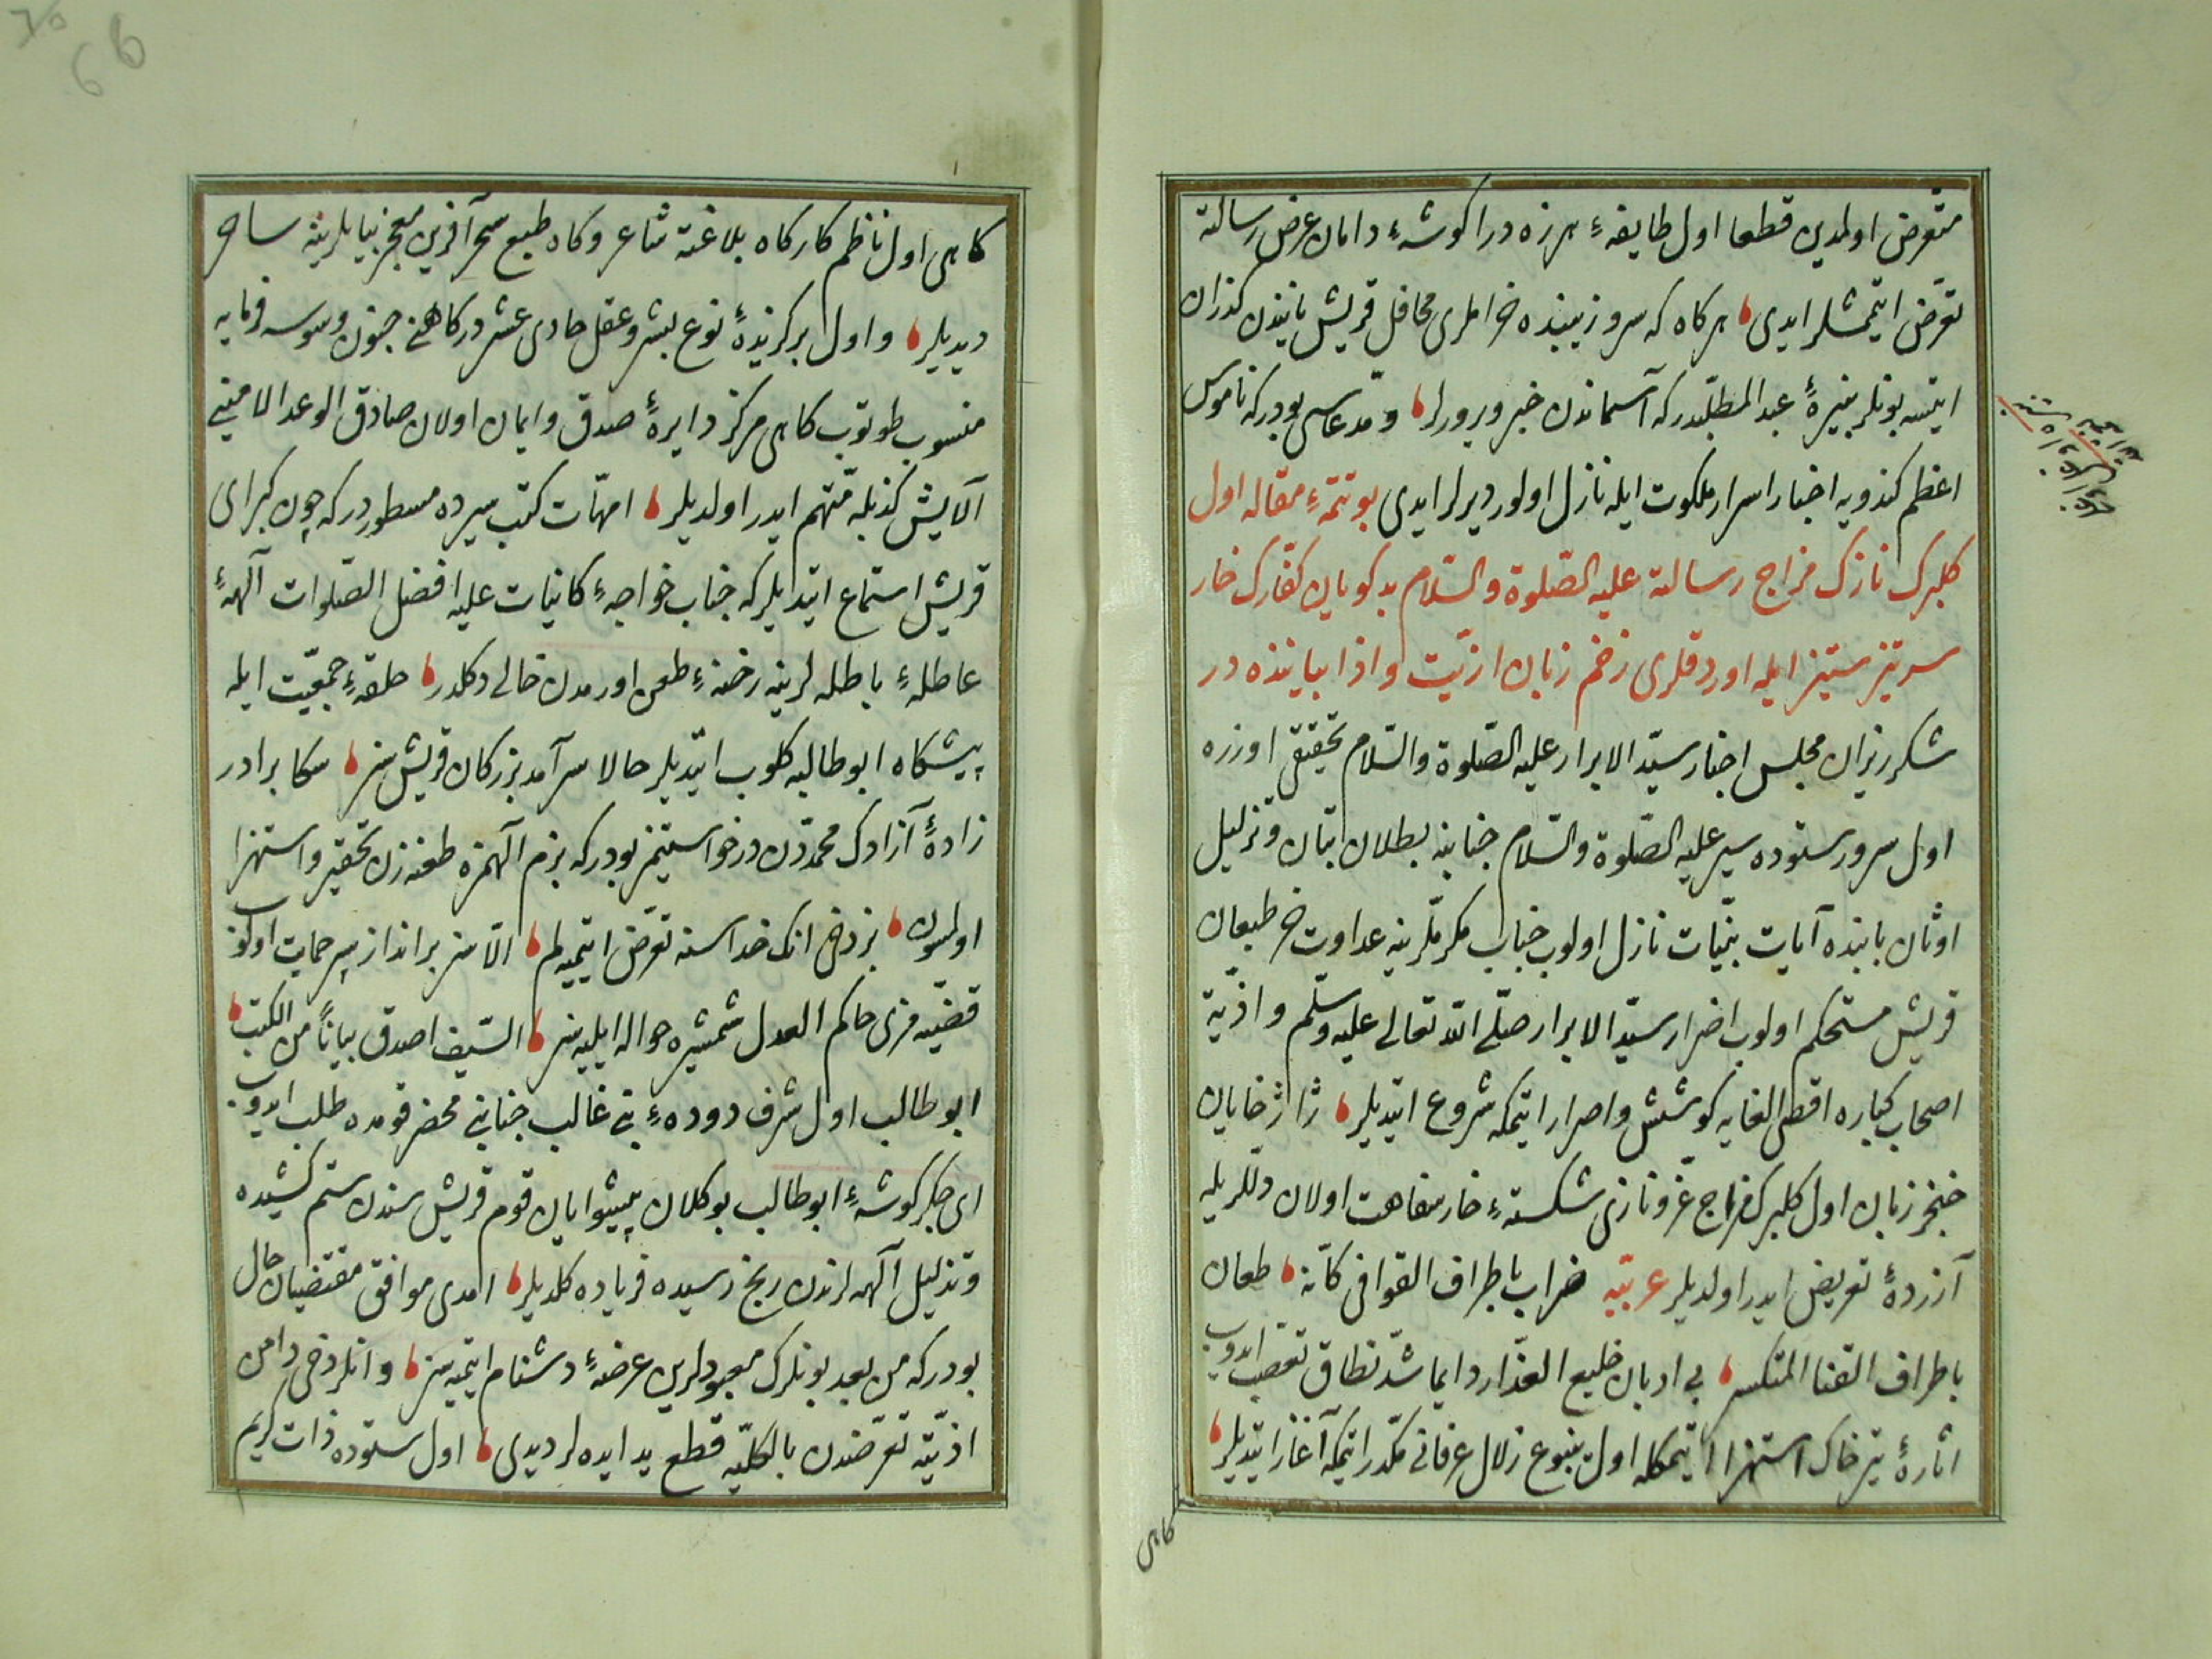 متعرض اولمدین قطعا اول طایفهٔ هرزه درا کوشهٔ دامان عرض رسالته
تعرّض ایتمشلر ایدی هر کاه که سرو زیبنده خراملری محافل قریش یانیندن کذران
ایتسه بونلر بنیرهٔ عبد المطلبدر که آسماندن خبر ویرورلر ومدّعاسی بودر که ناموس
اعظم کندویه اخبار اسرار ملکوت ایله نازل اولور دیرلر ایدی بو تتمّهٔ مقاله اول
کلبرک نازک مزاج رسالته علیه الصّلوة والسّلام بدکویان کفّارک خار
سرتیز ستیز ایله اوردقلری زخم زبان ازیّت واذا بیاننده در
شکرریزان مجلس اخبار سیّد الابرار علیه الصّلوة والسّلام تحقیقی اوزره
اول سرور ستوده سیر علیه الصّلوة والسّلام جنابنه بطلان بتان وتزلیل
اوثان بابنده آیات بیّنات نازل اولوب جناب مکرملرینه عداوت خر طبعان
قریش مستحکم اولوب اضرار سیّد الابرار صلّی الله تعالی علیه وسلّم واذیّة
اصحاب کباره اقصی الغایه کوشش واصرار ایتمکه شروع ایتدیلر ژاژ خایان
خنجر زبان اول کلبرک مزاج غرّ ونازی شکستهٔ خار سفاهت اولان دللریله
آزردهٔ تعریض ایدر اولدیلر عربیّه ضراب باطراف القوافی کأنه طعان
باطراف القنا المتکسر بی ادبان خلیع العذار دایما شدّ نطاق تعصب ایدوب
اثارهٔ تیز خاک استهزا ایتمکله اول ینبوع زلال عرفانی مکدّر ایتمکه آغاز ایتدیلر
کاهی
کاهی اول ناظم کارکاه بلاغته شاعر وکاه طبع سحر آفرین معجز بیانلرینه ساحر
دیدیلر واول برکزیدهٔ نوع بشر وعقل حادی عشر در کاهنی جنون وسوسه فرمایه
منسوب طوتوب کاهی مرکز دایرهٔ صدق وایمان اولان صادق الوعد الامینی
آلایش کذبله متّهم ایدر اولدیلر امهّات کتب سیرده مسطوردر که چون کبرای
قریش استماع ایتدیلر که جناب خواجهٔ کاینات علیه افضل الصّلوات آلههٔ
عاطلهٔ باطله لرینه رخنهٔ طعن اورمدن خالی دکلدر حلقهٔ جمعیّت ایله
پیشکاه ابو طالبه کلوب ایتدیلر حالا سرآمد بزرکان قریش سز سکا برادر
زادهٔ آزادک محمددن درخواستیمز بودر که بزم آلهمزه طعنه زن تحقیر واستهزا
اولمسون بز دخی انک خداسنه تعرّض ایتمیه لم الّا سز برانداز سپر حمایت اولکوز
قضیّه مزی حاکم العدل شمشیره حواله ایلیه سز السّیف اصدق بیاناً من الکتب
ابو طالب اول شرف دودهٔ بنی غالب جنابنی محضر قومده طلب ایدوب
ای جکر کوشهٔ ابو طالب بو کلان پیشوایان قوم قریش سندن ستم کشیده
وتذلیل آلهه لرندن رنج رسیده فریاده کلدیلر امدی موافق مقتضیات حال
بودر که من بعد بونلرک معبودلرین عرضهٔ دشنام ایتمیه سز وانلر دخی دامن
اذیّته تعرّضدن بالکلیّه قطع ید ایده لر دیدی اول ستوده ذات کریم